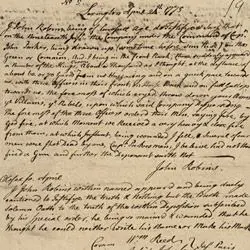 No 5
Lexington April 24th 1775
I John Robins, being of lawful age do testify & say that
on the Nineteenth Inst. the Company under the Command of Capt.
John Parker, being drawn up, (sometime before sun rise) on the
Green or Common, and I being in the front Rank, there suddenly appear'd
a number of the Kings Troops, about a thousand as I thought, at the distance
of about 60 or 70 yards from us huzzaing and on a quick pace towards
us, with three officers in their front on Horse Back, and on full Gallop
towards us, the foremost of which cried, throw down your arms
ye Villains, ye Rebels, upon which said Company dispersing,
the foremost of the three officers order'd their Men, saying, fire, by
God, fire, at which moment we received a very heavy & close fire
from them, at which instant, being wounded, I fell, & several
men were shot dead by me. Capt. Parkers men, I believe had not then
fired a Gun and further the Deponent saith not
John Robins
April
John Robins within named appeared and being duly
cautioned to testify the truth &
Oath to the truth of the within Deposition subscribed
by his special order, he being so maimed & wounded that he
thought he could neither write his name nor make his
Wm Reed